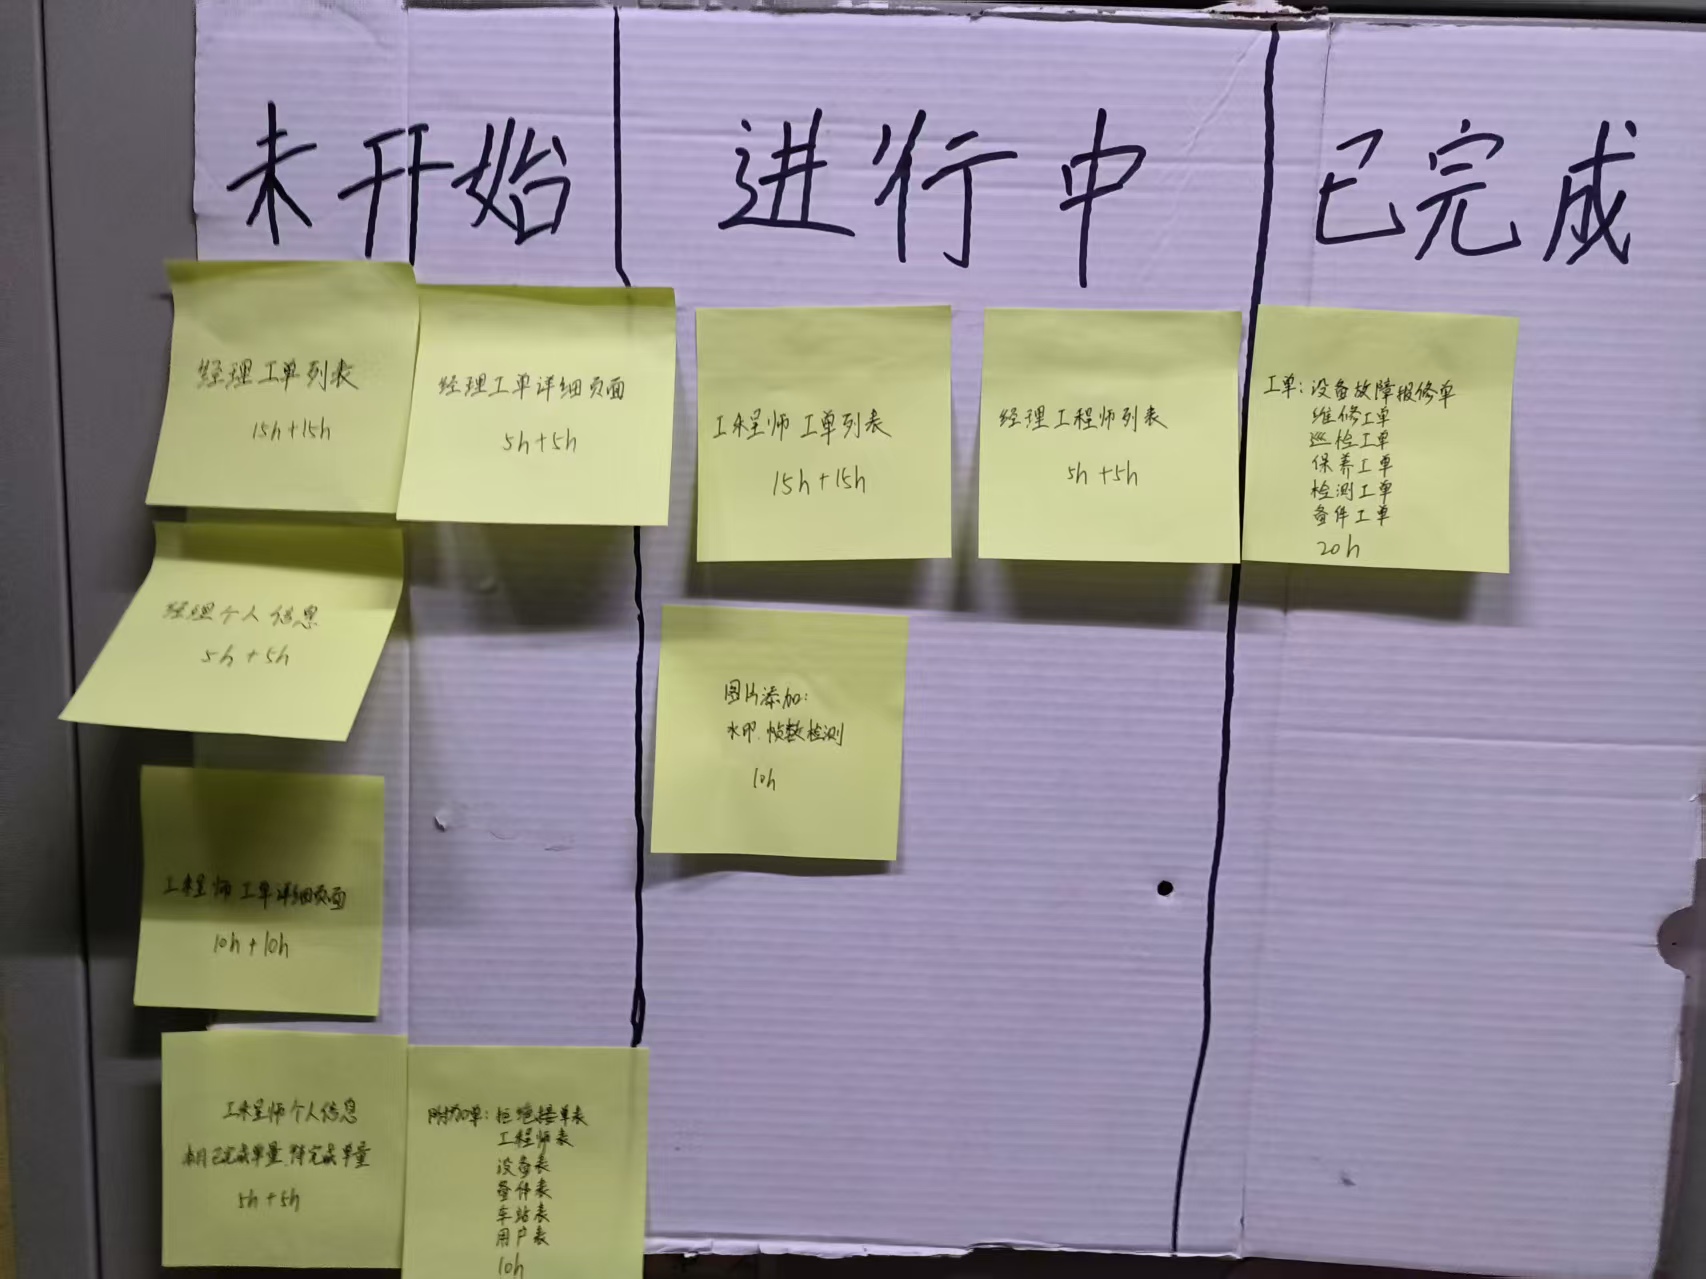 未开始
进行中
已完成
经理工单列表
15h+15h
经理工单详细页面
5h+5h
经理个人信息
5h+5h
工程师工单详细页面
10h+10h
工程师个人信息
本月已完成单量.待完成单量
5h+5h
附加单:拒绝接单表
工程师表
设备表
备件表
车站表
用户表
10h
工程师工单列表
15h+15h
经理工程师列表
5h+5h
图片添加:
水印.帧数检测
10h
工单:设备故障报修单
维修工单
巡检工单
保养工单
检测工单
备件工单
20h